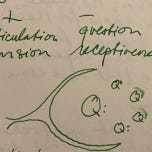 + –
iculation question
nsion receptiven
Q:
Q:
Q:
Q:
Q: